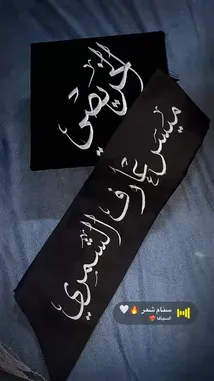 الحريصي
ميس عارف الشمري
سنام شمر 🔥🤍